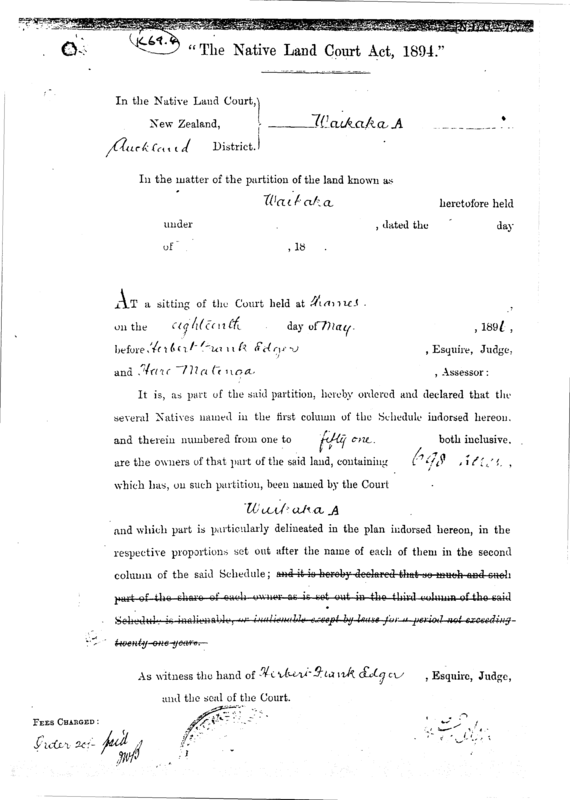 K69.
"The Native Land Court Act, 1894."
In the Native Land Court,
New Zealand,
Auckland District.
Waikaka A
In the matter of the partition of the land known as
Waikaka heretofore held
under , dated the day
of , 18 .
AT a sitting of the Court held at Thames.
on the eighteenth day of May. , 189 ,
before Herbert Frank Edger , Esquire, Judge,
and Hare Matenga , Assessor:
It is, as part of the said partition, hereby ordered and declared that the
several Natives named in the first column of the Schedule indorsed hereon,
and therein numbered from one to fifty one. both inclusive,
are the owners of that part of the said land, containing 698 acres,
which has, on such partition, been named by the Court
Waikaka A
and which part is particularly delineated in the plan indorsed hereon, in the
respective proportions set out after the name of each of them in the second
column of the said Schedule; and it is hereby declared that so much and such
part of the share of each owner as is set out in the third column of the said
Schedule is inalienable, or inalienable except by lease for a period not exceeding
twenty-one years.
As witness the hand of Herbert Frank Edger , Esquire, Judge,
and the seal of the Court.
FEES CHARGED:
Order 20/- paid